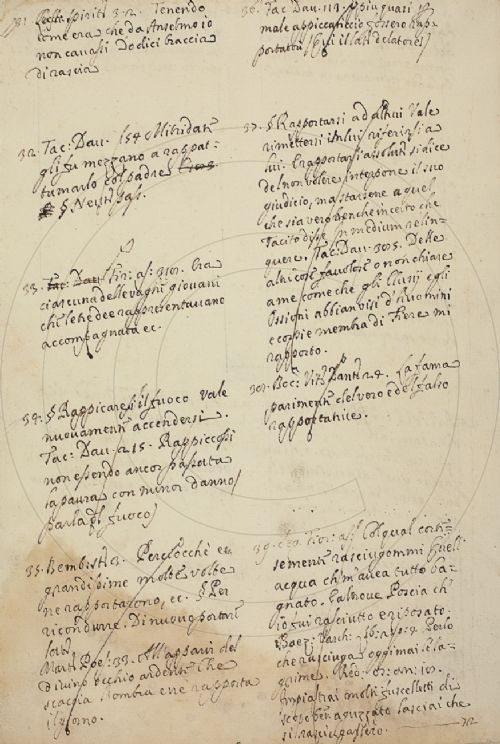 31. Cecch. Spirit. 3. 2. Tenendo
come era che da Anselmo io
non cavassi Dodici braccia
di rascia
32. Tac: Dau. 154 Mitridate
gli fu mezzano a rappat-
tumarlo col padre.
§. Neutr. pass.
33. Fir: as: 310. Era
ciascuna delle vaghe giovani
che le tre dee rappresentavano
accompagnata ec.
34. § Rappicarsi il fuoco Vale
nuovamente accendersi.
Tac: Dau. 215. Rappiccossi
non essendo ancor passata
la paura con minor danno
parla del fuoco)
35. Bemb. stor. Perciocchè ec.
grandissime molte volte
ne rapportarono, ec. § Per
ricondurre. Di nuovo portare
Matt. Poes: 33. All'apparir del
divino occhio ardente che
scaccia l'ombra e ne rapporta
il giorno.
36. Tac Dau. 114. Spioni quasi
male appiccaticcio fossero rap-
portatori (Qui il lat: delatores)
37. § Rapportarsi ad altrui Vale
rimettersi in lui riferirsi a
lui. E rapportarsi assolut. si dice
del non volere interporre il suo
giudicio, ma starsene a quel
che sia vero benchè incerto che
Tacito disse in medium relin-
quere. Tac: Dau. 305. Delle
altre cose favolose o non chiare
a me come che gli Ellusii e gli
Ossioni abbian visi d'huomini
e corpi e membra di Fiere mi
rapporto.
38. Boc: Vit: Dant: 24. La fama
parimente del vero e del falso
rapportatrice.
39. Fir: as: Col qual corte-
semente rasciugommi quell'
acqua ch m'avea tutto ba-
gnato. Poscia ch'
io fui rasciutto e riposato.
Boez: Varch: lib: 2
che rasciuga oggimai le la-
grime. Red: es: an: 107.
Impiastrai molti fuscelletti di
scope ben aguzzato lasciai che
si rasciugassero.